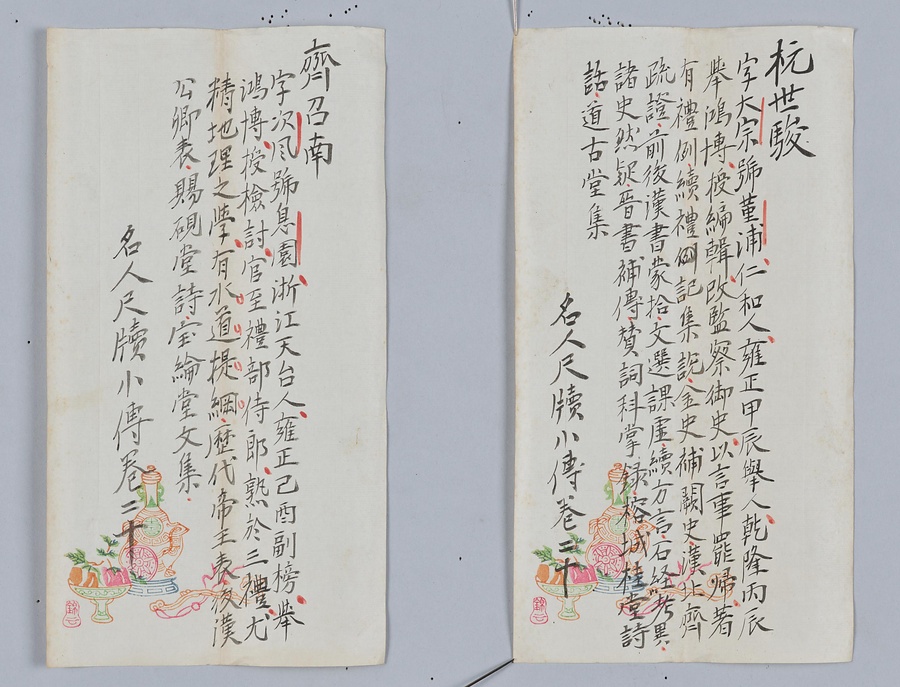 杭世駿
字大宗號堇浦仁和人雍正甲辰舉人乾隆丙辰
舉鴻博授編輯改監察御史以言事罷歸著
有禮例續禮例記集說金史補闕史漢北齊
疏證前後漢書蒙拾文選課虛續方言石經考異
諸史然疑晉書補傳贊詞科掌錄榕城桂堂詩
話道古堂集
名人尺牘小傳卷二十
齊召南
字次風號息園浙江天台人雍正己酉副榜舉
鴻博授檢討官至禮部侍郎熟於三禮尤
精地理之學有水道提綱歷代帝王表後漢
公卿表賜硯堂詩宝綸堂文集
名人尺牘小傳卷二十